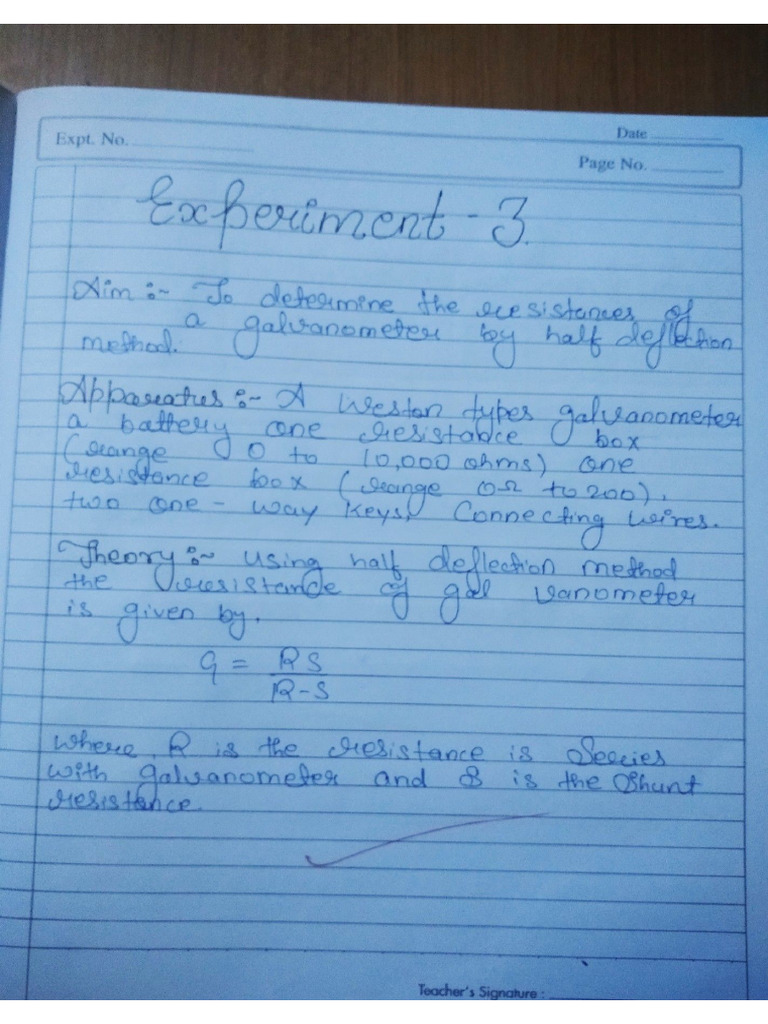 Expt. No.
Date
Page No.
Experiment - 3.
Aim :- To determine the resistances of
a galvanometer by half deflection
method.
Apparatus :- A Weston types galvanometer
a battery one resistable box
(range 0 to 10,000 ohms) one
resistance box (range 0Ω to 200),
two one - way keys, Connecting wires.
Theory :- Using half deflection method
the resistance of gal vanometer
is given by.
G = RS
R-S
where, R is the resistance is Series
with galvanometer and S is the Shunt
resistance
Teacher's Signature :